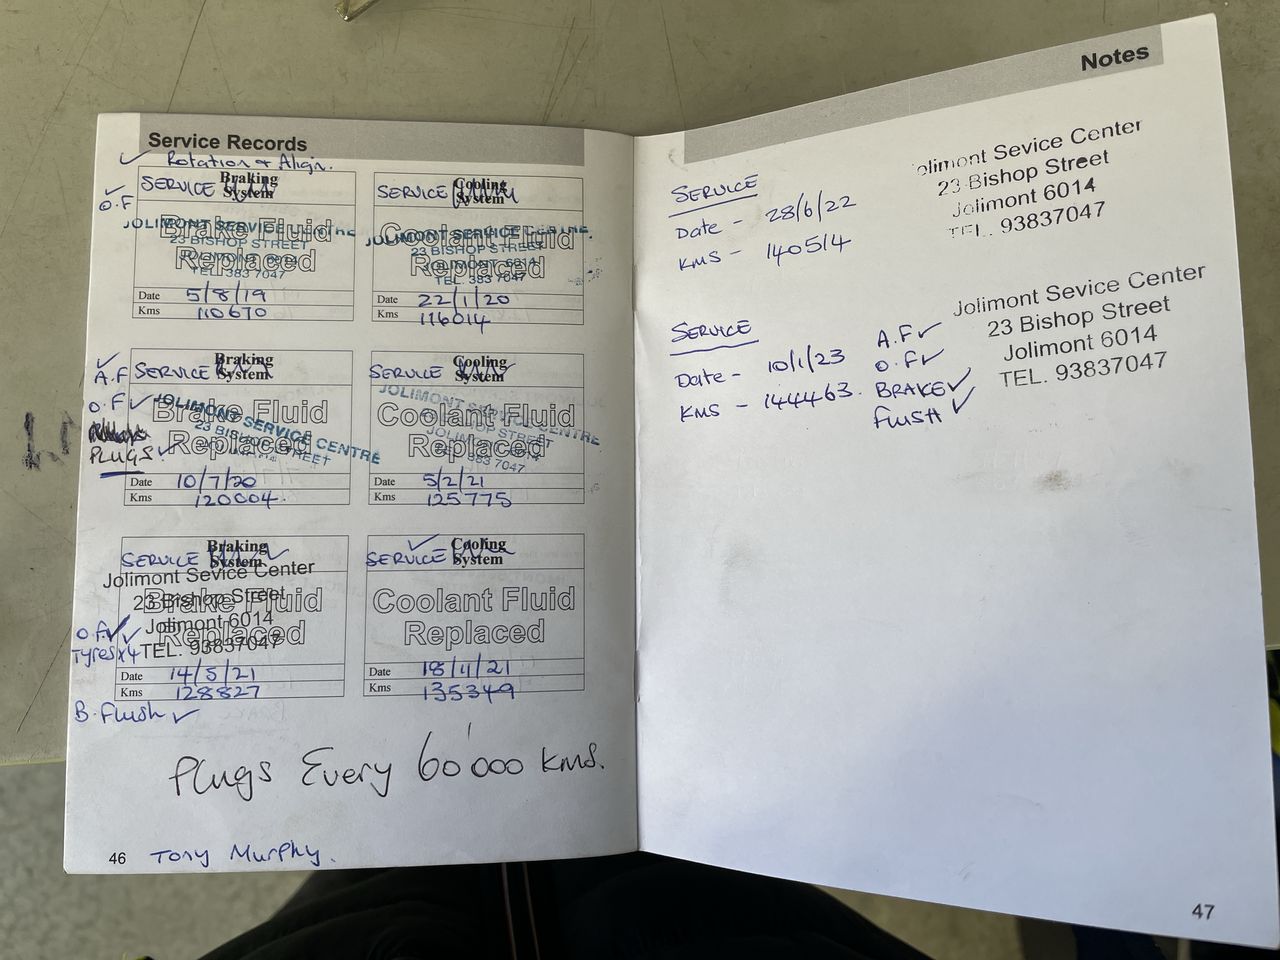 Service Records
✓ Rotation & Align.
✓
O.F
SERVICE
Braking
System
Brake Fluid
Replaced
JOLIMONT SERVICE CENTRE
23 BISHOP STREET
JOLIMONT 6014
TEL. 383 7047
Date 5/8/19
Kms 110670
SERVICE
Cooling
System
Coolant Fluid
Replaced
JOLIMONT SERVICE CENTRE
23 BISHOP STREET
JOLIMONT 6014
TEL. 383 7047
Date 22/1/20
Kms 116014
✓
A.F
O.F ✓
PLUGS ✓
SERVICE
Braking
System
Brake Fluid
Replaced
JOLIMONT SERVICE CENTRE
23 BISHOP STREET
Date 10/7/20
Kms 120004.
SERVICE
Cooling
System
Coolant Fluid
Replaced
JOLIMONT SERVICE CENTRE
STREET
383 7047
Date 5/2/21
Kms 125775
SERVICE
Braking
System
Brake Fluid
Replaced
Jolimont Sevice Center
23 Bishop Street
Jolimont 6014
TEL. 93837047
O.F ✓
Tyres x4 ✓
Date 14/5/21
Kms 128827
B. Flush ✓
SERVICE ✓
Cooling
System
Coolant Fluid
Replaced
Date 18/11/21
Kms 135349
Plugs Every 60'000 kms.
46
Tony Murphy.
Notes
SERVICE
Date - 28/6/22
KMS - 140514
Jolimont Sevice Center
23 Bishop Street
Jolimont 6014
TEL. 93837047
SERVICE
Date - 10/1/23
KMS - 144463.
A.F ✓
O.F ✓
BRAKE ✓
FLUSH ✓
Jolimont Sevice Center
23 Bishop Street
Jolimont 6014
TEL. 93837047
47